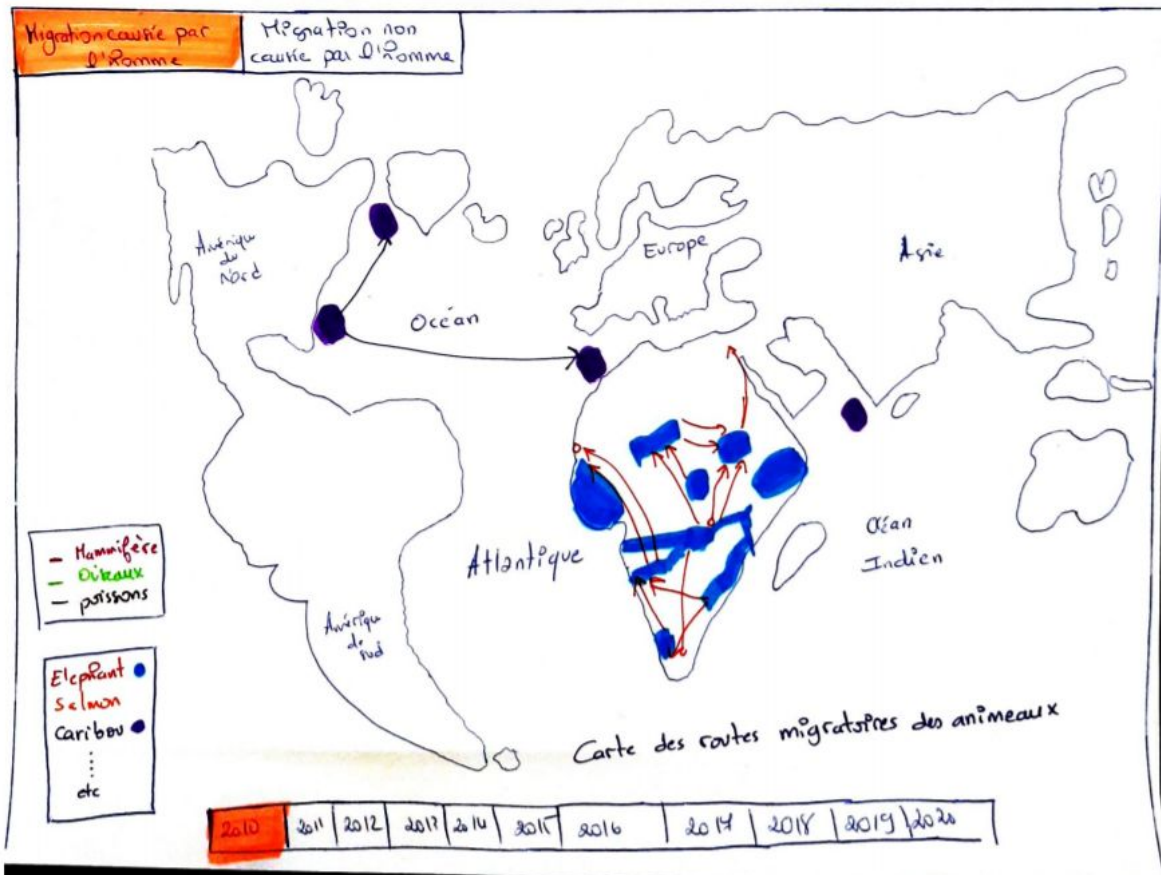 Migration causée par
l'homme
Migration non
causée par l'homme
Amérique
du
Nord
Océan
Europe
Asie
Atlantique
Océan
Indien
Amérique
de
sud
Mammifère
Oiseaux
poissons
Elephant
Salmon
Caribou
etc
Carte des routes migratoires des animeaux
2010 2011 2012 2013 2014 2015 2016 2017 2018 2019 2020